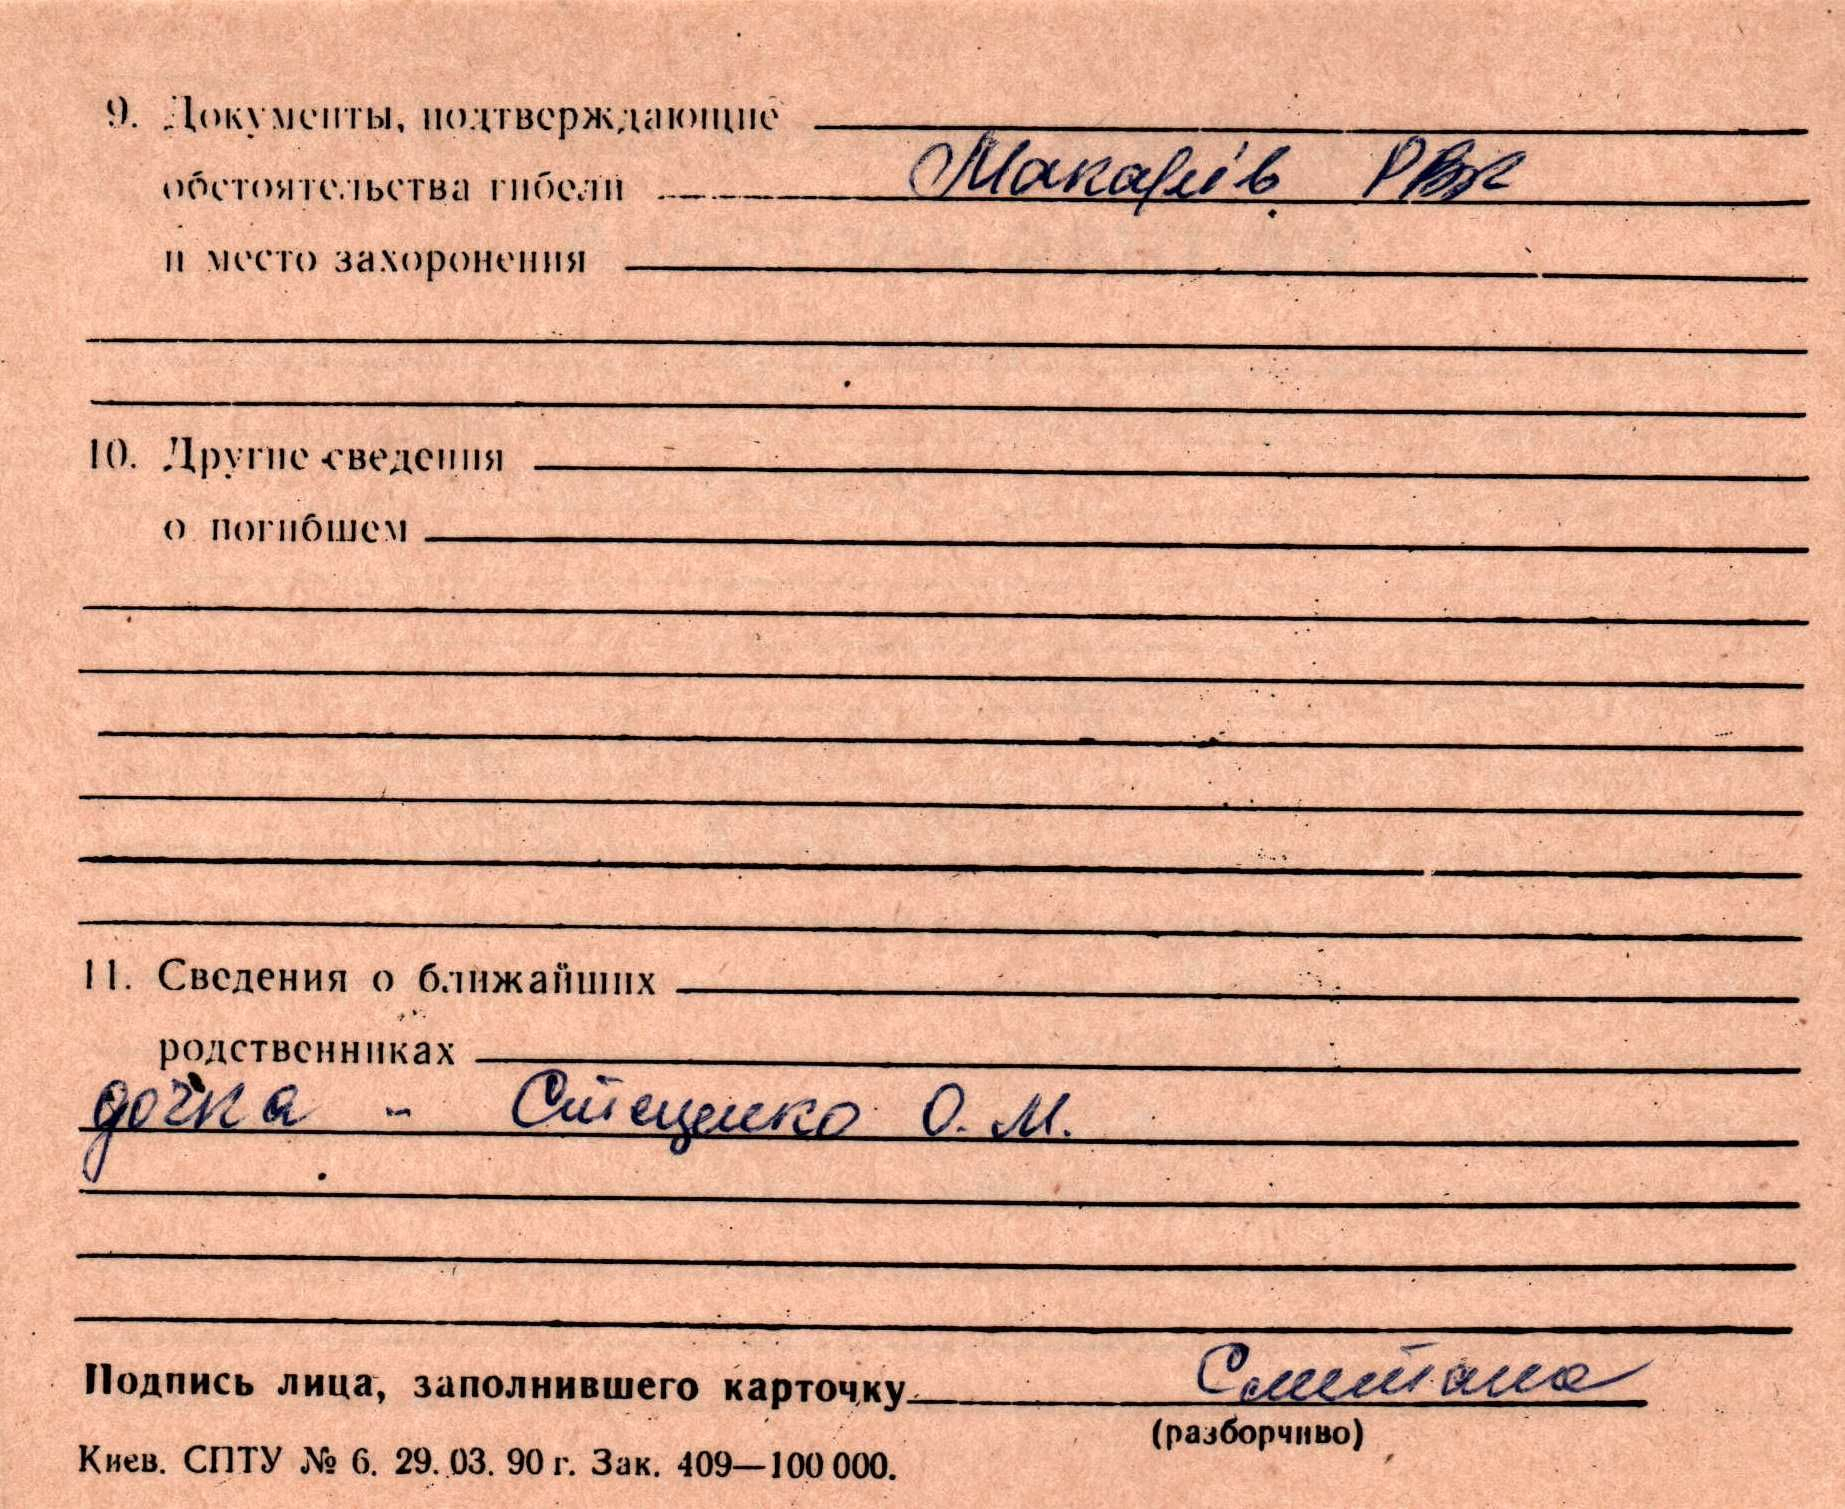 9. Документы, подтверждающие
обстоятельства гибели Макарів РВК
и место захоронения
10. Другие сведения
о погибшем
11. Сведения о ближайших
родственниках
дочка - Стеценко О. М.
Подпись лица, заполнившего карточку Сметана
(разборчиво)
Киев. СПТУ № 6. 29. 03. 90 г. Зак. 409—100 000.